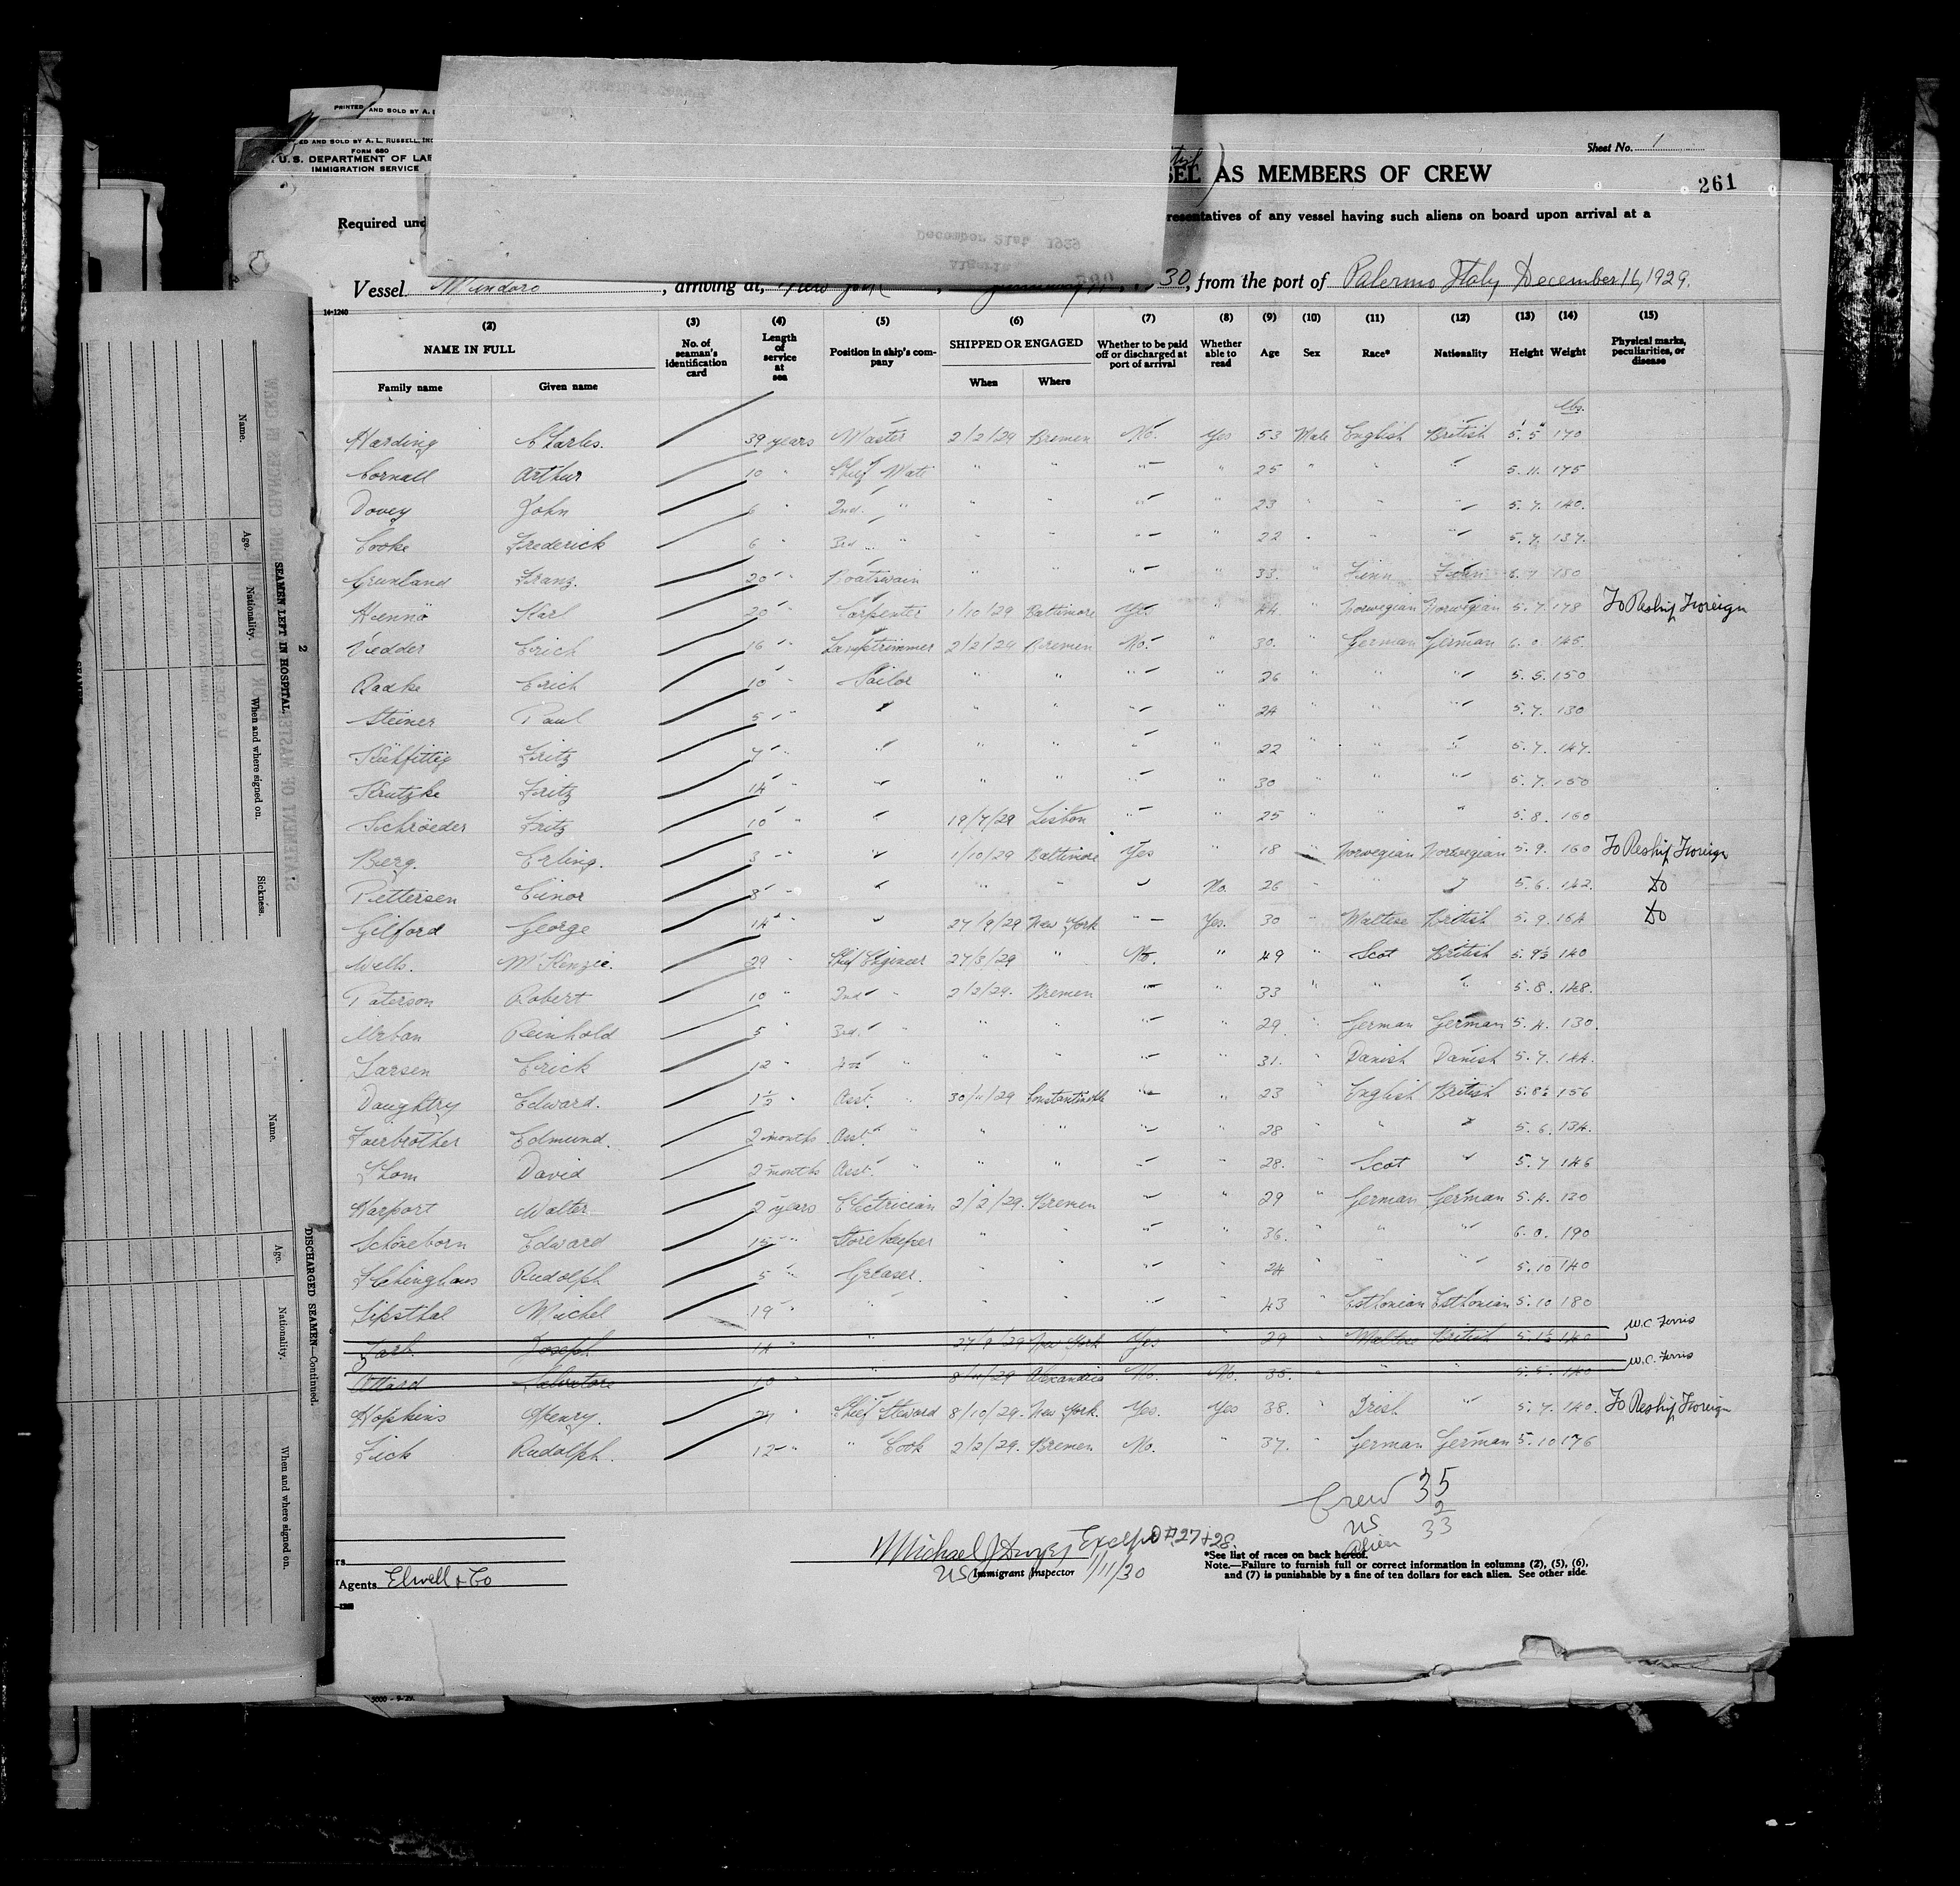 PRINTED AND SOLD BY A.
ED AND SOLD BY A. L. RUSSELL, INC
FORM 680
U.S. DEPARTMENT OF LAB
IMMIGRATION SERVICE
Sheet No. 1
SEL AS MEMBERS OF CREW
261
Required und
resentatives of any vessel having such aliens on board upon arrival at a
December 21st 1929
Algeria
Vessel Mindoro, arriving at, New York, 30, from the port of Palermo Italy December 16, 1929.
14-1240
(2) (3) (4) (5) (6) (7) (8) (9) (10) (11) (12) (13) (14) (15)
NAME IN FULL
Family name Given name
No. of seaman's identification card
Length of service at sea
Position in ship's company
SHIPPED OR ENGAGED
When Where
Whether to be paid off or discharged at port of arrival
Whether able to read
Age Sex Race* Nationality Height Weight
Physical marks, peculiarities, or disease
lbs.
Harding Charles. 39 years Master 2/2/29 Bremen No. Yes 53 Male English British 5' 5" 170
Cornall Arthur 10 " Chief Mate " " " " 25 " " " 5. 11. 175
Dovey John 6 " 2nd. " " " " " 23 " " " 5. 7. 140.
Cooke Frederick 6 " 3rd " " " " " 22 " " " 5. 7. 137.
Grunland Franz. 20 " Boatswain " " " " 33. " Finn Finn 6. 1 180
Hennö Karl 20 " Carpenter 1/10/29 Baltimore Yes. " 44. " Norwegian Norwegian 5. 7. 178 To Reship Foreign
Vedder Erich 16 " Lamptrimmer 2/2/29 Bremen No. " 30. " German German 6. 0. 145.
Radke Erich 10 " Sailor " " " " 26 " " " 5. 5. 150
Steiner Paul 5 " " " " " " 24 " " " 5. 7. 130
Kühfittig Fritz 7 " " " " " " 22 " " " 5. 7. 147.
Krutzke Fritz 14 " " " " " " 30 " " " 5. 7. 150
Schröeder Fritz 10 " " 19/7/29 Lisbon " " 25 " " " 5. 8. 160
Berg. Erling. 3 " " 1/10/29 Baltimore Yes " 18 " Norwegian Norwegian 5. 9. 160 To Reship Foreign
Pettersen Einor 8 " " " " " No. 26 " " " 5. 6. 142. Do
Gilford George 14 " " 27/9/29 New York " Yes. 30 " Maltese British 5. 9. 164 Do
Wells. McKenzie. 29 " Chief Engineer 27/3/29 " No. " 49 " Scot British 5. 9½ 140
Paterson Robert 10 " 2nd " 2/2/29. Bremen " " 33 " " " 5. 8. 148.
Urban Reinhold 5 " 3rd. " " " " " 29. " German German 5. 4. 130.
Larsen Erick 12 " 4th " " " " " 31. " Danish Danish 5. 7. 144.
Daughtry Edward. 1½ " Asst. " 30/11/29 Constantinople " " 23 " English British 5. 8½ 156
Faerbrother Edmund. 2 months Asst. " " " " " 28 " " " 5. 6. 134.
Thom David 2 months Asst. " " " " " 28. " Scot " 5. 7 146
Harport Walter 2 years Electrician 2/2/29. Bremen " " 29 " German German 5. 4. 130
Schöneborn Edward 15 " Storekeeper " " " " 36. " " " 6. 0. 190
Rudolph 5 " Greaser. " " " " 24 " " " 5. 10 140
Lipsthal Michel 19 " " " " " " 43 " Esthonian Esthonian 5. 10 180
Joseph 14 " " 27/9/29 New York Yes " 29 " Maltese British 5. 1½ 140 W.C. Ferris
Attard Salvatore 10 " " 8/11/29 Alexandria No. No. 35. " " " 5. 5. 140 W.C. Ferris
Hopkins Henry. 21 " Chief Steward 8/10/29. New York. Yes. Yes 38. " Irish " 5. 7. 140. To Reship Foreign
Fick Rudolph. 12 " " Cook 2/2/29. Bremen No. " 37. " German German 5. 10 176
Crew 35
US 2
Alien 33
Michael J Dwyer Except #27+28.
US Immigrant Inspector 1/11/30
Agents Elwell & Co
*See list of races on back hereof.
Note.—Failure to furnish full or correct information in columns (2), (5), (6),
and (7) is punishable by a fine of ten dollars for each alien. See other side.
5000 - 9-29.
2
SEAMEN LEFT IN HOSPITAL
Name. Age. Nationality. When and where signed on. Sickness.
DISCHARGED SEAMEN—Continued.
Name. Age. Nationality. When and where signed on.
STATEMENT OF MASTER REGARDING CHANGES IN CREW